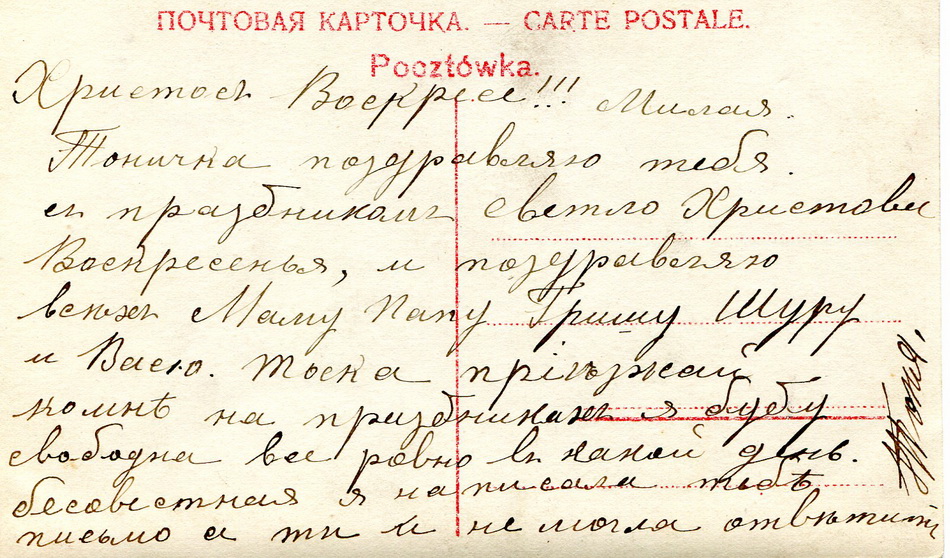 ПОЧТОВАЯ КАРТОЧКА. — CARTE POSTALE.
Pocztówka.
Христосъ Воскресе!!! Милая
Тоничка поздравляю тебя.
съ праздникомъ светло Христовы
Воскресенья, и поздравляю
всехъ Маму Папу Гришу Шуру
и Васю. Тоска пріѣзжай
комнѣ на праздникахъ я буду
свободна все ровно въ какой день.
бесовестная я написала тебѣ
письмо а ты и не могла отвѣтить
Тоня.